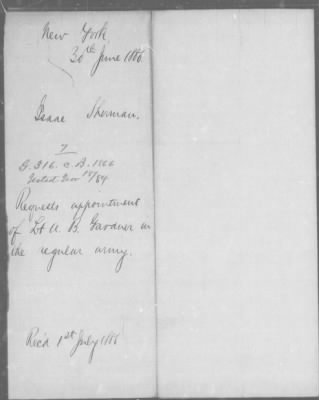 New York,
30th June 1866
Isaac Sherman.
7
G. 316. C. B. 1866
Requests appointment
of Lt A. B. Gardner in
the regular army.
Rec'd 1st July 1866